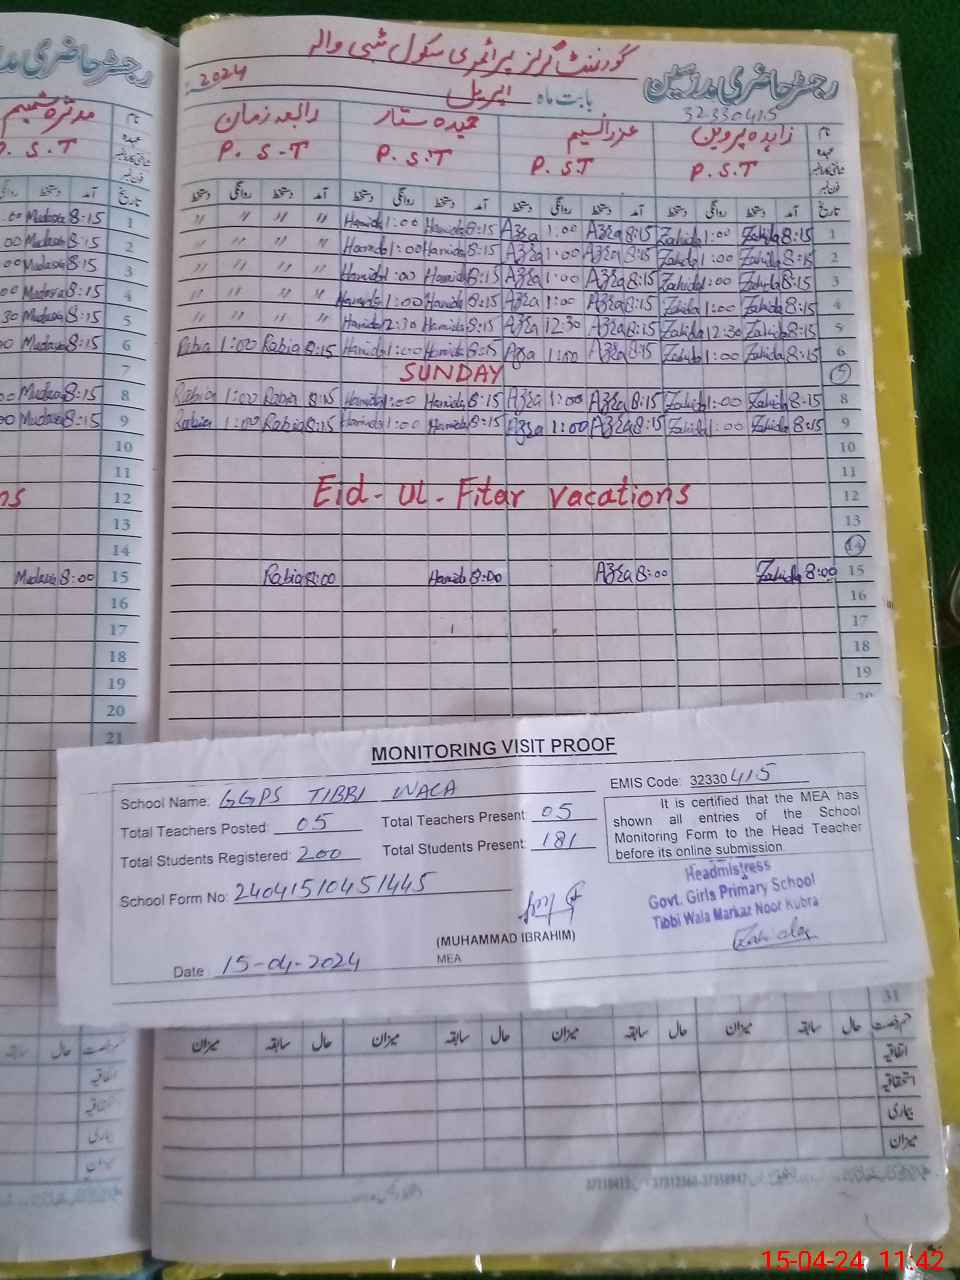 رجسٹر حاضری مدرسین گورنمنٹ گرلز پرائمری سکول ٹبی والہ
32330415
بابت ماہ اپریل 2024
نام زاہدہ پروین عذرا نسیم حمیدہ ستار رابعہ زمان
عہدہ P.S.T P.S.T P.S.T P.S.T
تاریخ آمد دستخط روانگی دستخط آمد دستخط روانگی دستخط آمد دستخط روانگی دستخط آمد دستخط روانگی دستخط
1 8:15 Zahida 1:00 Zahida 8:15 Azra 1:00 Azra 8:15 Hamida 1:00 Hamida " " " "
2 8:15 Zahida 1:00 Zahida 8:15 Azra 1:00 Azra 8:15 Hamida 1:00 Hamida " " " "
3 8:15 Zahida 1:00 Zahida 8:15 Azra 1:00 Azra 8:15 Hamida 1:00 Hamida " " " "
4 8:15 Zahida 1:00 Zahida 8:15 Azra 1:00 Azra 8:15 Hamida 1:00 Hamida " " " "
5 8:15 Zahida 12:30 Zahida 8:15 Azra 12:30 Azra 8:15 Hamida 12:30 Hamida " " " "
6 8:15 Zahida 1:00 Zahida 8:15 Azra 1:00 Azra 8:15 Hamida 1:00 Hamida 8:15 Rabia 1:00 Rabia
7 SUNDAY
8 8:15 Zahida 1:00 Zahida 8:15 Azra 1:00 Azra 8:15 Hamida 1:00 Hamida 8:15 Rabia 1:00 Rabia
9 8:15 Zahida 1:00 Zahida 8:15 Azra 1:00 Azra 8:15 Hamida 1:00 Hamida 8:15 Rabia 1:00 Rabia
10
11
12 Eid-ul-Fitar vacations
13
14
15 8:00 Zahida 8:00 Azra 8:00 Hamida 8:00 Rabia
16
17
18
19
20
رجسٹر حاضری
مدثرہ شمیم نام
P.S.T عہدہ
تاریخ آمد دستخط
1 8:15
2 8:15
3 8:15
4 8:15
5 8:15
6 8:15
7
8 8:15
9 8:15
10
11
12
13
14
15 8:00
16
17
18
19
20
21
MONITORING VISIT PROOF
School Name: GGPS TIBBI WALA
EMIS Code: 32330415
Total Teachers Posted: 05 Total Teachers Present: 05
Total Students Registered: 200 Total Students Present: 181
It is certified that the MEA has
shown all entries of the School
Monitoring Form to the Head Teacher
before its online submission.
School Form No: 24041510451445
Headmistress
Govt. Girls Primary School
Tibbi Wala Markaz Noor Kubra
Zahida
(MUHAMMAD IBRAHIM)
MEA
Date: 15-04-2024
31
حال سابقہ میزان حال سابقہ میزان حال سابقہ میزان حال سابقہ میزان
اتفاقیہ
استحقاقیہ
بیماری
میزان
15-04-24 11:42